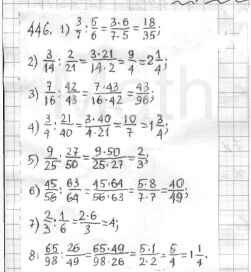 446. 1) 3/7 : 5/6 = 3·6/7·5 = 18/35;
2) 3/14 : 2/21 = 3·21/14·2 = 9/4 = 2 1/4;
3) 7/16 : 42/43 = 7·43/16·42 = 43/96;
4) 3/4 : 21/40 = 3·40/4·21 = 10/7 = 1 3/4;
5) 9/25 : 27/50 = 9·50/25·27 = 2/3;
6) 45/56 : 63/64 = 45·64/56·63 = 5·8/7·7 = 40/49;
7) 2/3 : 1/6 = 2·6/3 = 4;
8. 65/98 : 26/49 = 65·49/98·26 = 5·1/2·2 = 5/4 = 1 1/4.